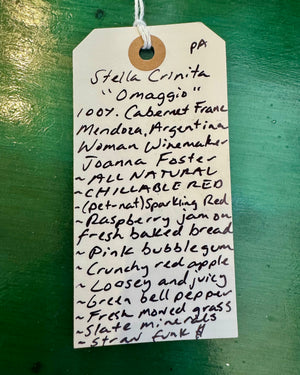 PA
Stella Crinita
"Omaggio"
100% Cabernet Franc
Mendoza, Argentina
Woman Winemaker
Joanna Foster
~ALL NATURAL
~CHILLABLE RED
~(pet-nat) Sparkling Red
~Raspberry jam on
fresh baked bread
~Pink bubblegum
~Crunchy red apple
~Loosey and juicy
~Green bell pepper
~Fresh mowed grass
~Slate minerals
~Straw funk #